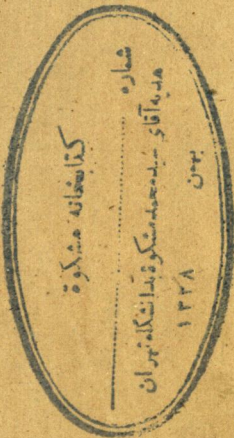 کتابخانه مشکوة
شماره
هدیه آقای سیدمحمدمشکوة بدانشگاه تهران
بهمن
۱۳۲۸